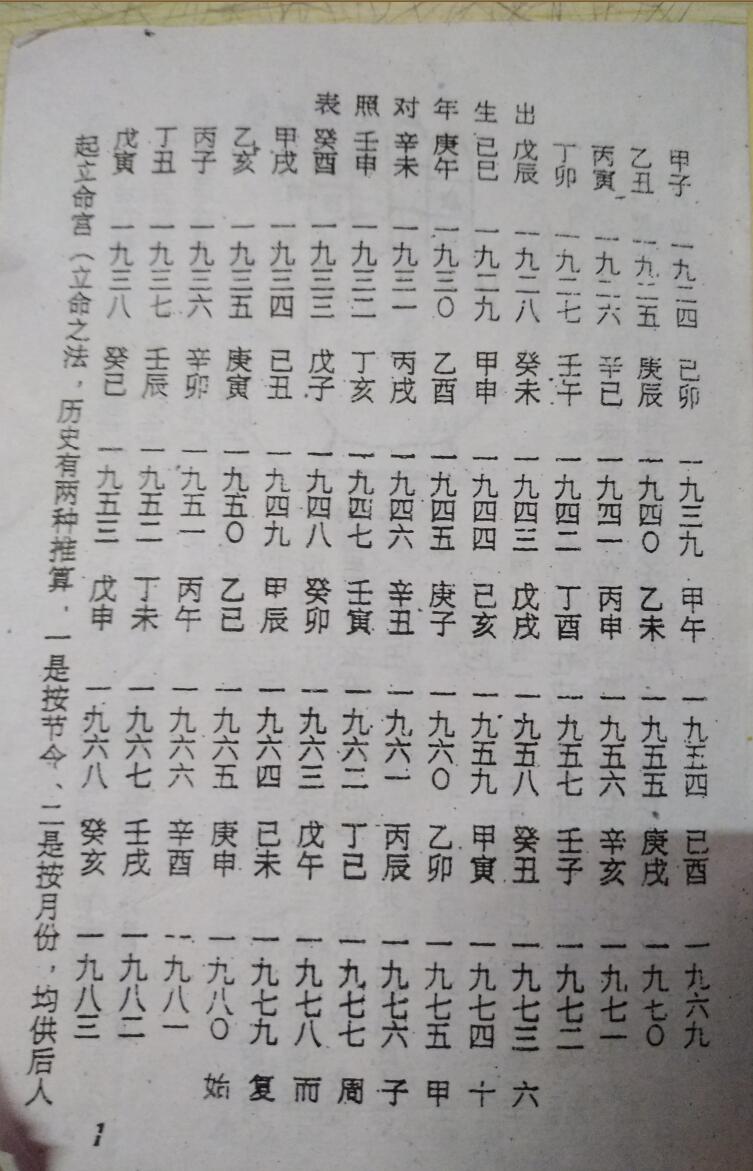 出生年对照表
甲子 一九二四 己卯 一九三九 甲午 一九五四 己酉 一九六九
乙丑 一九二五 庚辰 一九四〇 乙未 一九五五 庚戌 一九七〇
丙寅 一九二六 辛巳 一九四一 丙申 一九五六 辛亥 一九七一
丁卯 一九二七 壬午 一九四二 丁酉 一九五七 壬子 一九七二
戊辰 一九二八 癸未 一九四三 戊戌 一九五八 癸丑 一九七三
己巳 一九二九 甲申 一九四四 己亥 一九五九 甲寅 一九七四
庚午 一九三〇 乙酉 一九四五 庚子 一九六〇 乙卯 一九七五
辛未 一九三一 丙戌 一九四六 辛丑 一九六一 丙辰 一九七六
壬申 一九三二 丁亥 一九四七 壬寅 一九六二 丁巳 一九七七
癸酉 一九三三 戊子 一九四八 癸卯 一九六三 戊午 一九七八
甲戌 一九三四 己丑 一九四九 甲辰 一九六四 己未 一九七九
乙亥 一九三五 庚寅 一九五〇 乙巳 一九六五 庚申 一九八〇
丙子 一九三六 辛卯 一九五一 丙午 一九六六 辛酉 一九八一
丁丑 一九三七 壬辰 一九五二 丁未 一九六七 壬戌 一九八二
戊寅 一九三八 癸巳 一九五三 戊申 一九六八 癸亥 一九八三
六十甲子周而复始
起立命宫（立命之法，历史有两种推算，一是按节令、二是按月份，均供后人
1